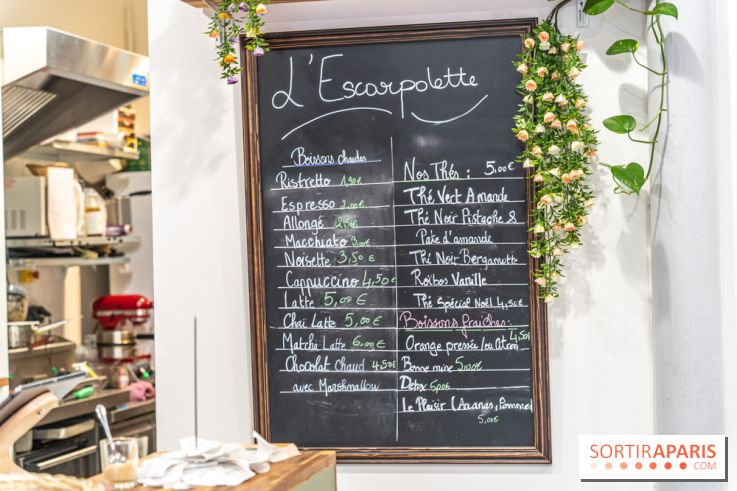 L'Escarpolette
Boissons chaudes
Ristretto 1,90€
Espresso 2,00€
Allongé 2,50€
Macchiato 3,00€
Noisette 3,50€
Cappuccino 4,50€
Latte 5,00€
Chai Latte 5,00€
Matcha Latte 6,00€
Chocolat Chaud 4,50€
avec Marshmallow
Nos Thés : 5,00€
Thé Vert Amande
Thé Noir Pistache &
Pâte d'amande
Thé Noir Bergamotte
Roïbos Vanille
Thé Spécial Noël 4,50€
Boissons fraiches :
4,50€
Orange pressée/ou Citron
Bonne mine 5,00€
Detox 5,00€
Le Plaisir (Ananas, Pomme)
5,00€
SORTIRAPARIS
.COM